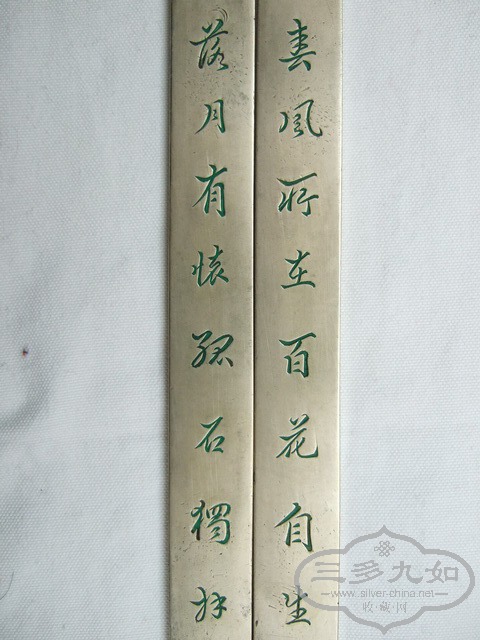 春風所在百花自生
落月有懷孤石獨妍
三多九如
www.silver-china.net
收·藏·网